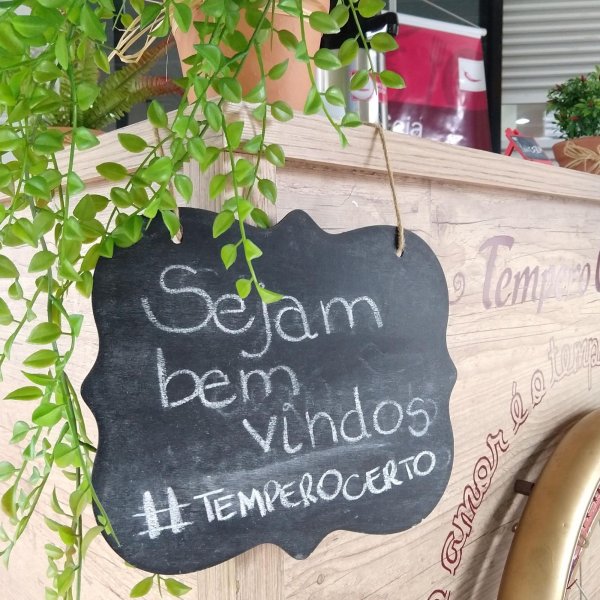 Sejam
bem
vindos
#TEMPEROCERTO
Tempero
amor é o temp